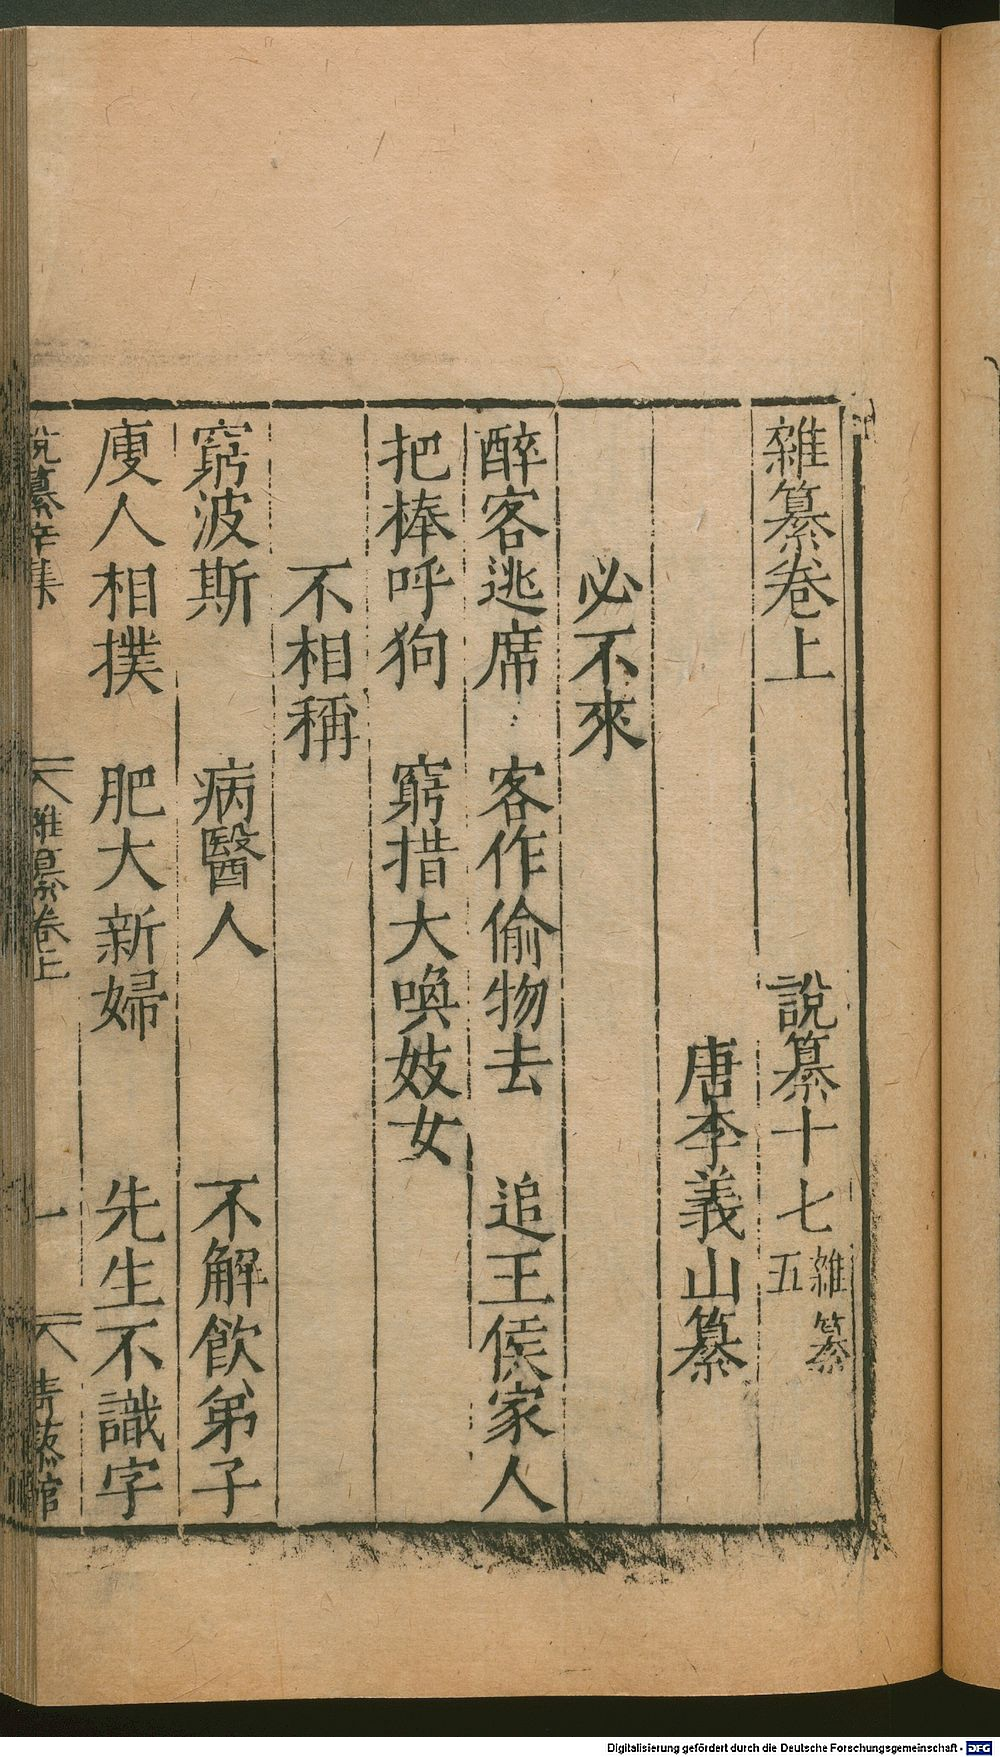 雜纂卷上 說纂十七 雜纂五
唐李義山纂
必不來
醉客逃席 客作偷物去 追王侯家人
把棒呼狗 窮措大喚妓女
不相稱
窮波斯 病醫人 不解飲弟子
瘦人相撲 肥大新婦 先生不識字
說纂辛集 雜纂卷上 一
Digitalisierung gefördert durch die Deutsche Forschungsgemeinschaft - DFG